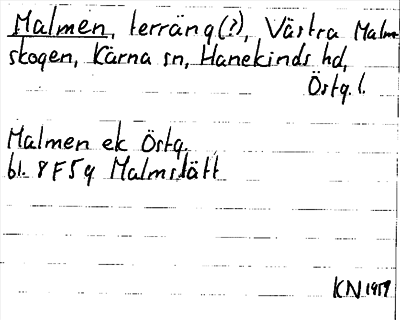 Malmen, terräng(?), Västra Malm-
skogen, Kärna sn, Hanekinds hd,
Östg. l.
Malmen ek Östg.
bl. 8F5g Malmslätt
KN 1959